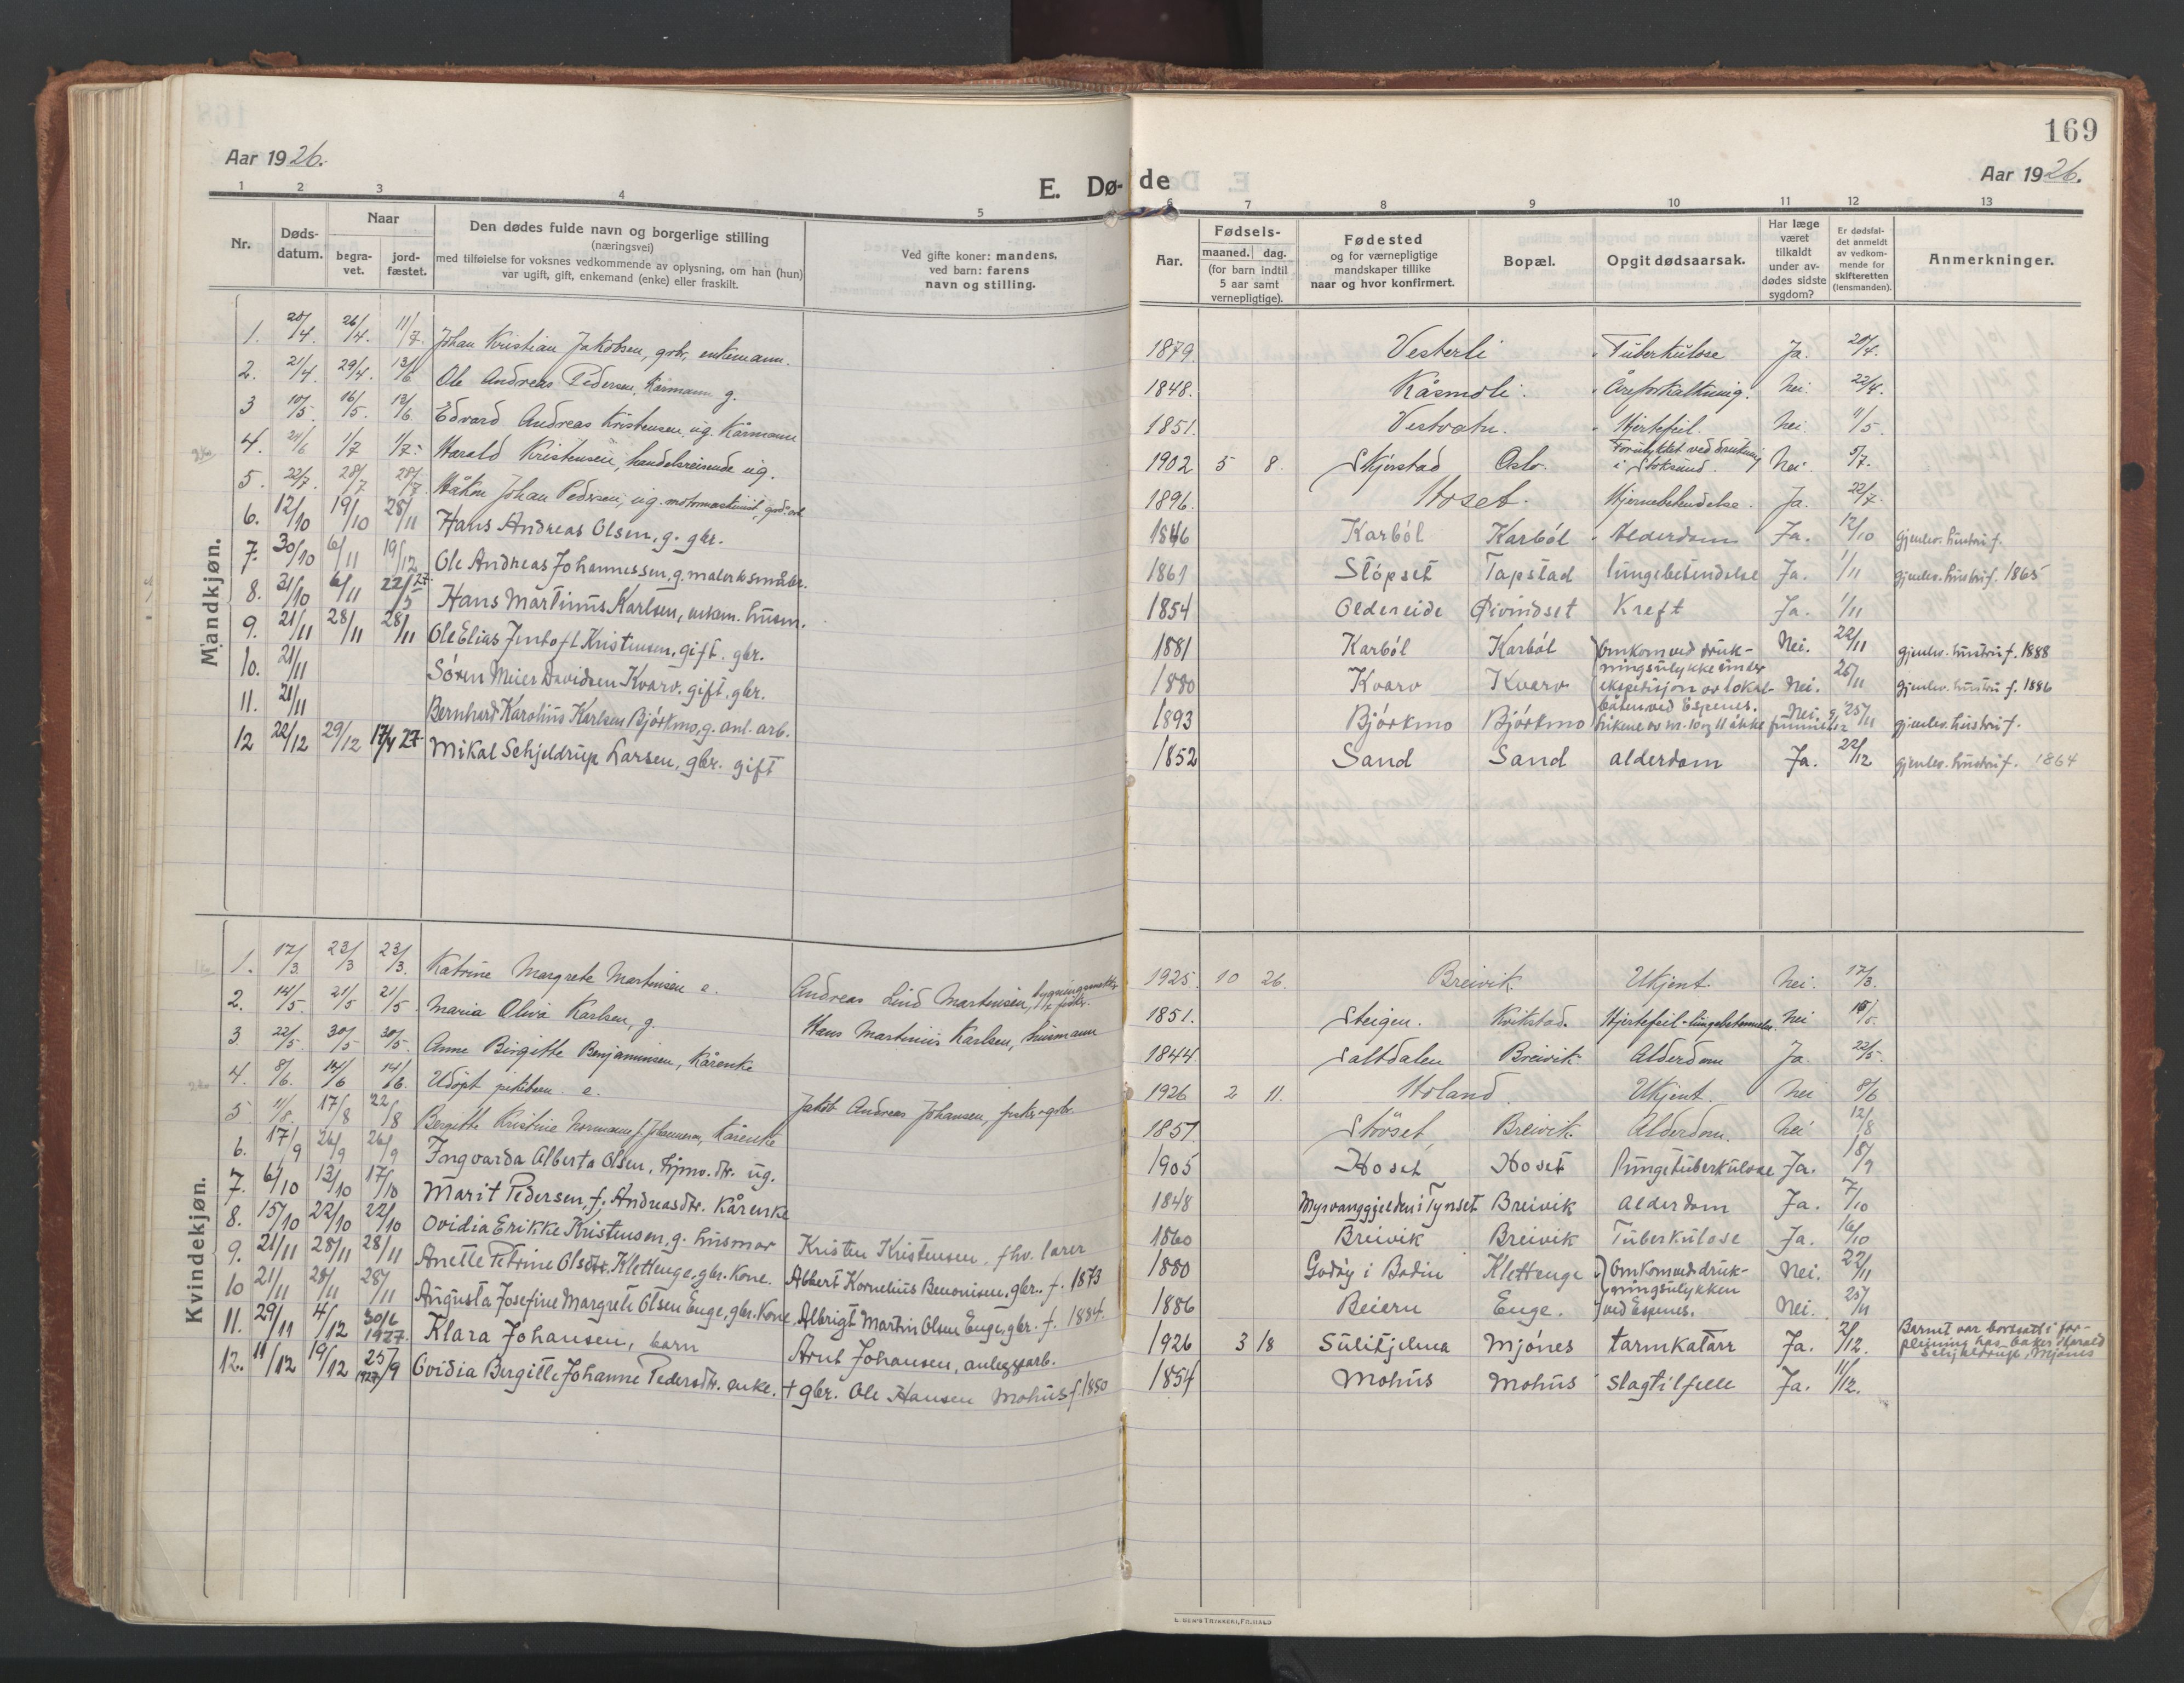 169
Aar 1926.
Aar 1926.
E. Dø-
de
1 2 3 4 5 6 7 8 9 10 11 12 13
Nr.
Døds-
datum.
Naar
begra-
vet.
jord-
fæstet.
Den dødes fulde navn og borgerlige stilling
(næringsvei)
med tilføielse for voksnes vedkommende av oplysning, om han (hun)
var ugift, gift, enkemand (enke) eller fraskilt.
Ved gifte koner: mandens,
ved barn: farens
navn og stilling.
Aar.
Fødsels-
maaned. dag.
(for barn indtil
5 aar samt
vernepligtige).
Fødested
og for værnepligtige
mandskaper tillike
naar og hvor konfirmert.
Bopæl.
Opgit dødsaarsak.
Har læge
været
tilkaldt
under av-
dødes sidste
sygdom?
Er dødsfal-
det anmeldt
av vedkom-
mende for
skifteretten
(lensmanden).
Anmerkninger.
Mandkjøn.
1. 20/4. 26/4. 11/7. Johan Kristian Jakobsen, gbr., enkemann. 1879. Vesterli Tuberkulose Ja. 20/4.
2. 21/4. 29/4. 13/6 Ole Andreas Pedersen, Kårmann g. 1848. Kåsmoli. Åreforkalkning. nei. 22/4.
3 10/5. 16/5. 13/6. Edvard Andreas Kristensen, ug. Kårmann 1851. Vestvatn. Hjertefeil. nei. 11/5.
4. 21/6 1/7 1/7. Harald Kristensen, handelsreisende ug. 1902 5 8. Skjerstad Oslo. Forulykket ved drukning
i Stoksund. Nei. 5/7.
5. 22/7. 28/7 28/7. Håkon Johan Pedersen, ug. motormaskinist, 1896. Hoset. Hjernebetendelse. Ja. 22/7.
6. 12/10 19/10 28/11 Hans Andreas Olsen, g. gbr. 1846 Karból Karból Alderdom Ja. 12/10 gjenlev. hustru f.
7. 30/10 6/11 19/12 Ole Andreas Johannessen, g. maler & småbr. 1861 Stópset Tapstad lungebetendelse Ja. 1/11 gjenlev. hustru f. 1865
8. 31/10 6/11 22/5 27. Hans Martinus Karlsen, enkem. husm. 1854 Oldereide Øivindset Kreft Ja. 1/11
9. 21/11 28/11 28/11 Ole Elias Jentoft Kristensen, gift. gbr. 1881 Karból Karból Omkom ved druk- Nei. 22/11 gjenlev. hustru f. 1888
10. 21/11 Sóren Meier Davidsen Kvarv, gift, gbr. 1880 Kvarv Kvarv ningsulykke under
ekspedisjon av lokal- Nei. 25/11 gjenlev. hustru f. 1886
båten ved Espenes.
11. 21/11 Bernhard Karolius Karlsen Bjórkmo, g. anl. arb. 1893 Bjórkmo Bjórkmo Likene av nr. 10 og 11 ikke funnet Nei. 25/11 gjenlev. hustru f.
12 22/12 29/12 17/4 27 Mikal Schjeldrup Larsen, gbr. gift 1852 Sand Sand alderdom Ja. 22/12 gjenlev. hustru f. 1864
Kvindekjøn.
1. 17/3. 23/3 23/3. Katrine Margrete Martinsen e. Andreas Lind Martinsen, bygningssnekker 1925. 10 26. Breivik. Ukjent. nei. 17/3.
2. 14/5. 21/5 21/5 Maria Oliva Karlsen, g. Hans Martinus Karlsen, husmann 1851. Steigen. Kvikstad. Hjertefeil - lungebetennelse. nei 15/5.
3 22/5. 30/5 30/5. Anne Birgitte Benjaminsen, Kårenke 1844. Saltdalen Breivik Alderdom Ja 22/5.
4. 8/6. 14/6 14/6. Udöpt pikebarn. e. Jakob Andreas Johansen, fisker - gbr. 1926 2 11. Holand. Ukjent. nei 8/6
5 11/8. 17/8 22/8 Bergitte Kristine Normann f. Johannesen, Kårenke 1851. Stövset Breivik. Alderdom. nei 12/8
6. 17/9 26/9 26/9 Ingvarda Alberta Olsen, hjmv. dtr. ug. 1905 Hoset Hoset lungetuberkulose Ja. 18/9
7. 6/10 13/10 17/10 Marit Pedersen, f. Andreasdtr. Kårenke 1848 Myrvanggjelden i Tynset Breivik alderdom Ja. 7/10
8. 15/10 22/10 22/10 Ovidia Erikke Kristensen, g. husmor Kristen Kristensen, fhv. lærer 1860 Breivik Breivik Tuberkulose Ja. 16/10
9. 21/11 28/11 28/11 Anette Petrine Olsdtr. Klettenge, gbr. Kone. Albert Kornelius Benonisen, gbr. f. 1873 1880 Godöy i Bodin Klettenge Omkom ved druk- Nei. 22/11
10 21/11 28/11 28/11 Augusta Josefine Margrete Olsen Enge, gbr. Kone Albrigt Martin Olsen Enge, gbr. f. 1884. 1886 Beiern Enge. ningsulykken
ved Espenes. Nei. 25/11
11. 29/11 4/12 30/6 1927. Klara Johansen, barn Arnt Johansen, anleggsarb. 1926 3 18 Sulitjelma Mjónes tarmkatarr Ja. 2/12. Barnet var bortsatt i for-
pleining hos baker Harald
Schjeldrup, Mjónes
12. 11/12 19/12 25/9 1927 Ovidia Bergitte Johanne Pedersdtr. enke. + gbr. Ole Hansen Mohus f. 1850 1854 Mohus Mohus slagtilfelle Ja. 11/12.